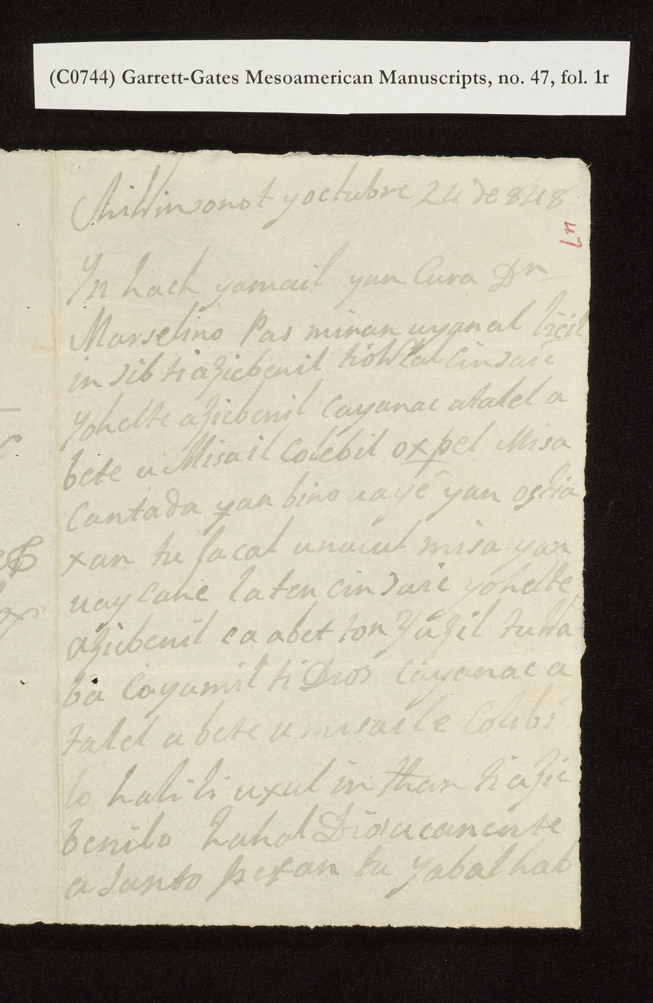 (C0744) Garrett-Gates Mesoamerican Manuscripts, no. 47, fol. 1r
y octubre 24 de 848
47
In hach yamail yun Cura Dn
Marselino Pas minan uyanal licil
in sib ti aɔicbenil tioklal cin ɔaic
yohelte aɔicbenil cayanac atalel a
bete u Misail Colebil oxpel Misa
Cantada yan bino uayé yan ostia
xan tu lacal unucul misa yan
uay cane laten cin ɔaic yohelte
aɔicbenil ca abet ton
ba Cayumil ti Dios cayanac a
talel a bete u misail e Colebi
lo hali li uxul in than ti aɔic
benilo hahal Dios ucanante
a santo pixan tu yabal hab